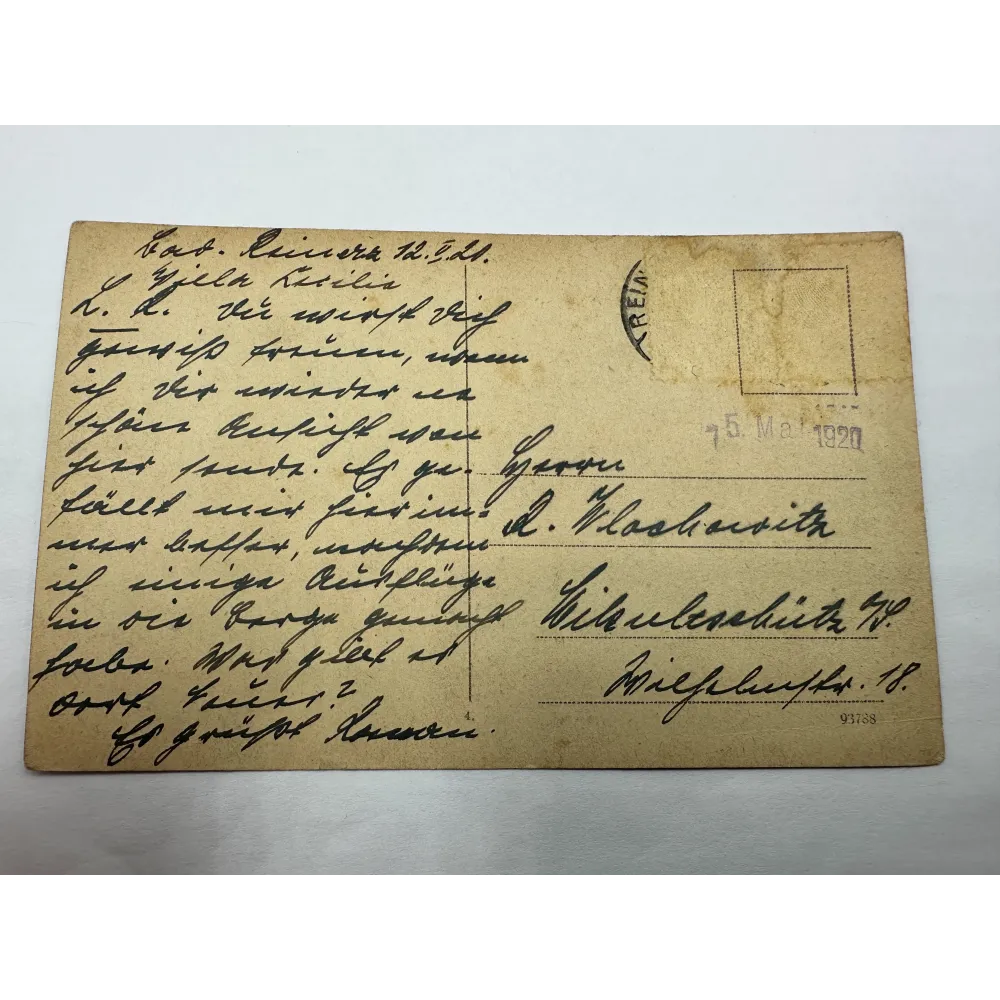 Bad. Reinerz 12.V.20.
Villa Cecilie
L. R. Du wirst Dich
gewiß freuen, wenn
ich Dir wieder ne
schöne Ansicht von
hier sende. Es ge-
fällt mir hier im-
mer besser, nachdem
ich einige Ausflüge
in die Berge gemacht
habe. Was gibt es
dort Neues?
Es grüßt Roman.
REIN
15. Mai 1920
Herrn
R. Wloskowitz
Mikultschütz O/S.
Wilhelmstr. 18.
4.
93788